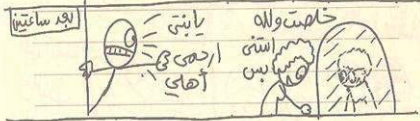 بعد ساعتين
يا بنتي
ارحمي في
أهلي
خلصت ولله
استني
بس